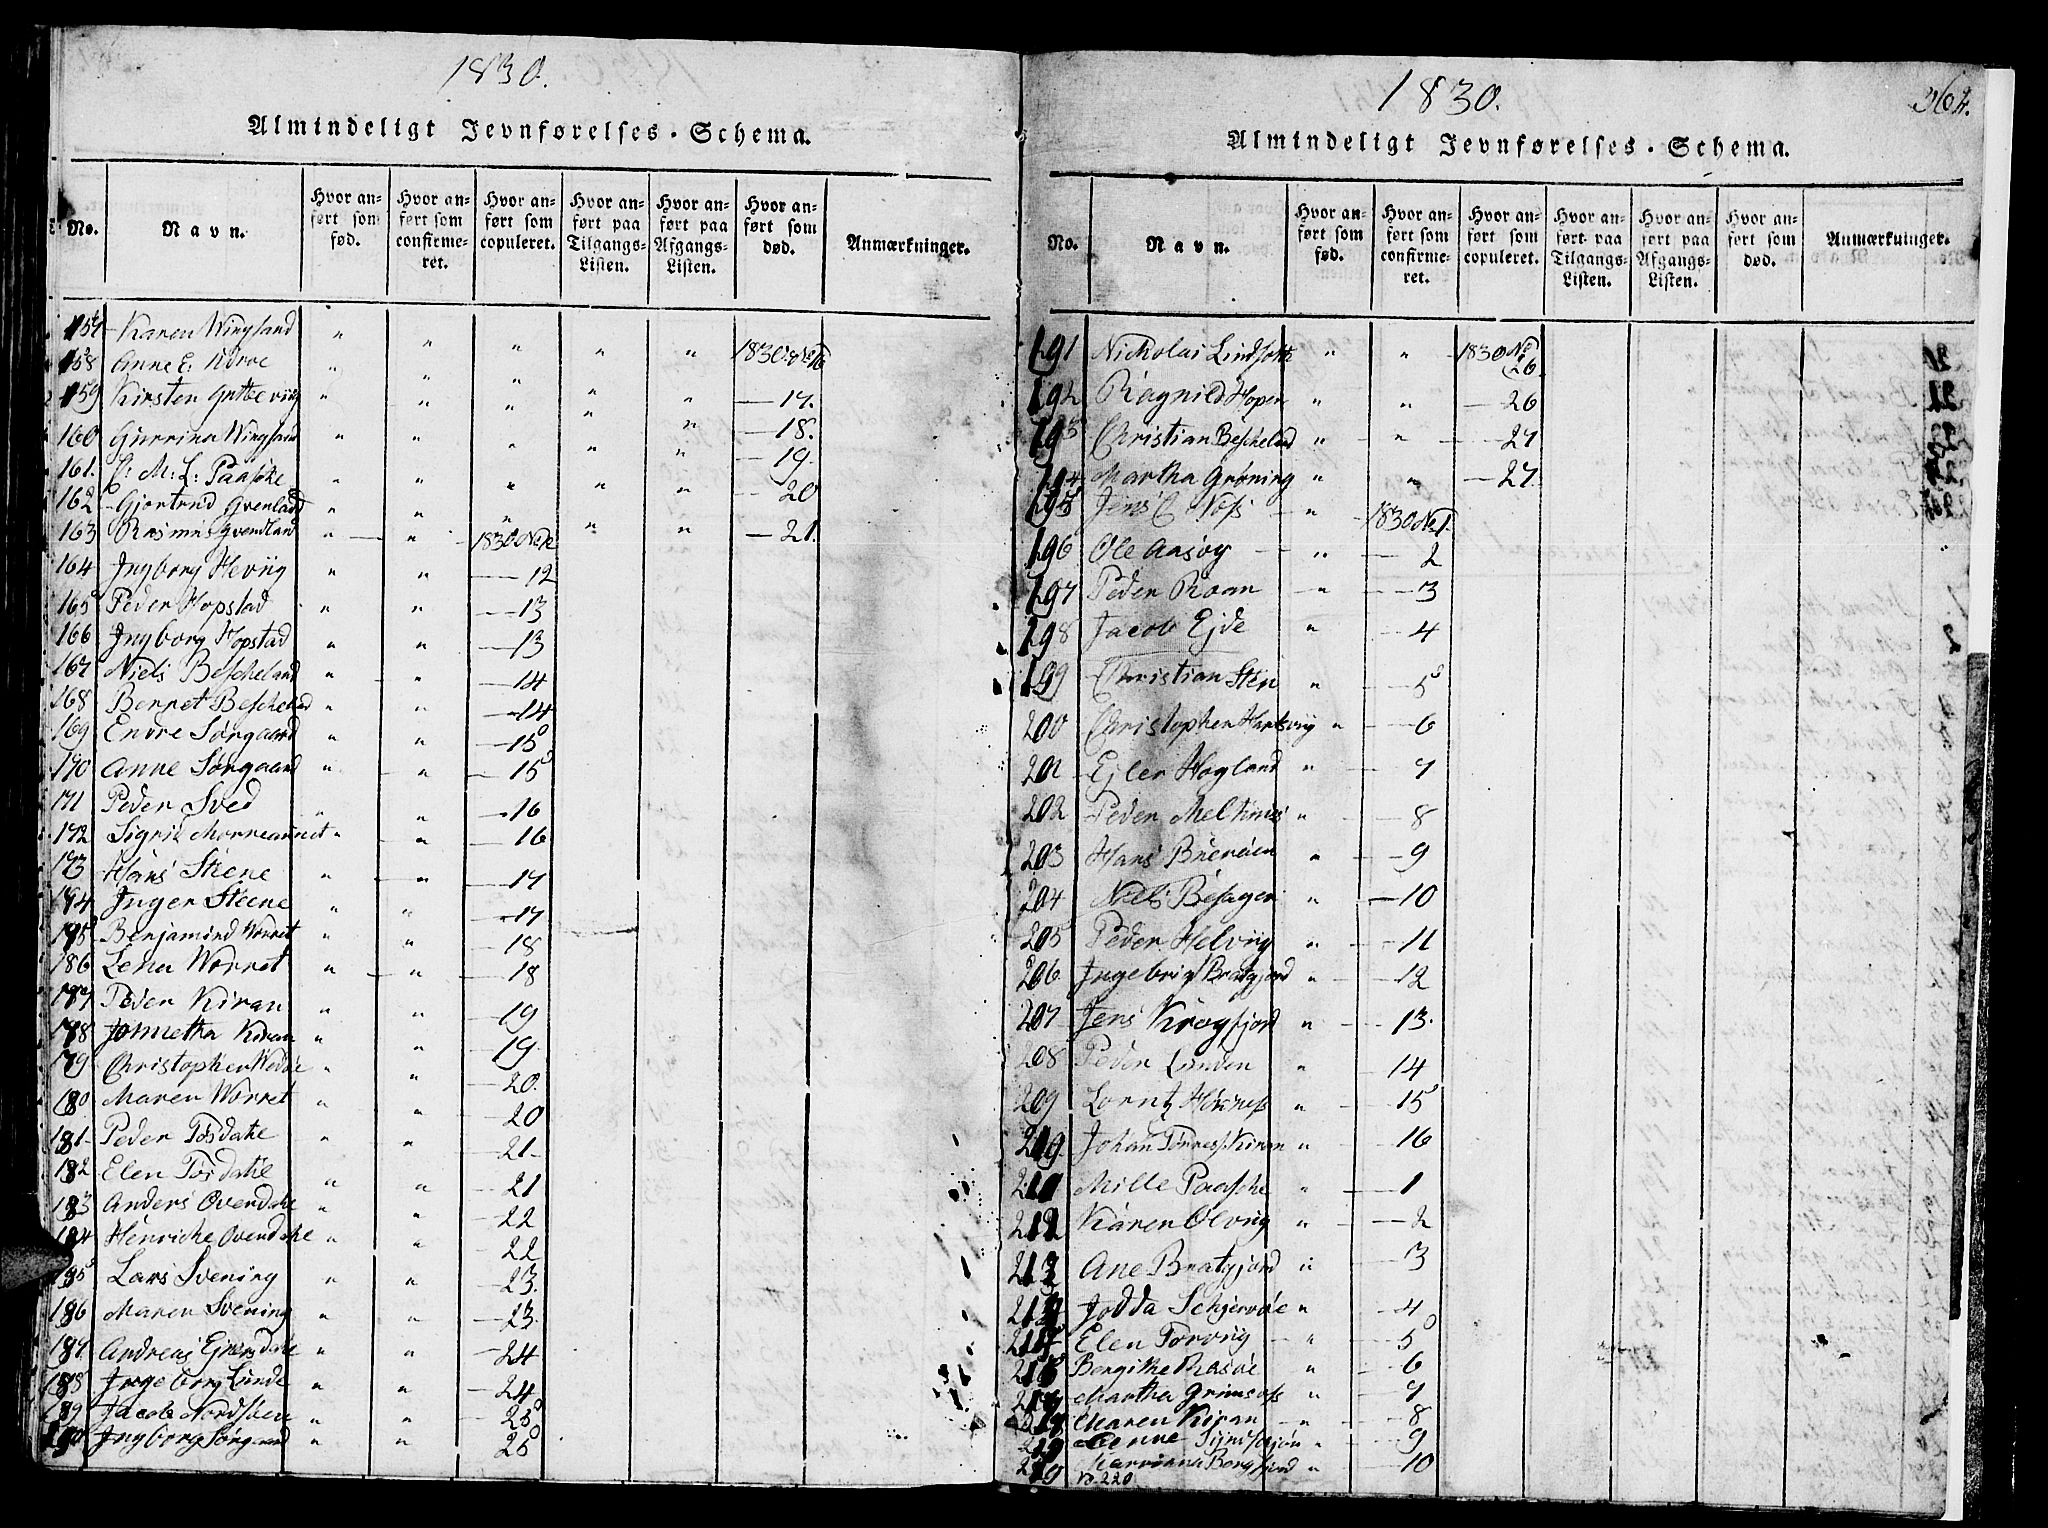 1830.
Almindeligt Jevnførelses-Schema.
No. Navn. Hvor anført som fød. Hvor anført som confirmeret. Hvor anført som copuleret. Hvor anført paa Tilgangs-Listen. Hvor anført paa Afgangs-Listen. Hvor anført som død. Anmærkninger.
157 Karen Wingsand " " " " " 1830 No 16
158 Anne E: " " " " "
159 Kirsten " " " " " — 17.
160 Gurrina Wingsand " " " " " — 18.
161. C: M: L: Paaske " " " " " — 19.
162 Gjertrud Gvenland " " " " " — 20
163 Rasmus Gvendland " " 1830 No 12 " " — 21.
164 Ingborg Hevig " " — 12
165 Peder Hopstad " " — 13
166 Ingborg Hopstad " " — 13
167 Niels Bescheland " " — 14
168 Berret Bescheland " " — 14
169 Endre Sørgaard " " — 15
170 Anne Sørgaard " " — 15
171 Peder Sved " " — 16
172 Sigrid " " — 16
173 Hans Stene " " — 17
174 Inger Steene " " — 17
175 Benjamind Worret " " — 18
186 Lena Worret " " — 18
187 Peder Kiran " " — 19
178 Johnetha Kiran " " — 19.
179 Christopher " " — 20.
180 Maren Worret " " — 20
181 Peder Tøsdahe " " — 21
182 Elen Tøsdahe " " — 21
183 Anders Ovendahe " " — 22
184 Henriche Ovendahe " " — 22
185 Lars Svening " " — 23.
186 Maren Svening " " — 23.
187 Andreas " " — 24
188 Ingeborg Lunde " " — 24
189 Jacob Nordskien " " — 25
190 Ingborg Sørgaard " " — 25
1830.
364.
Almindeligt Jevnførelses-Schema.
No. Navn. Hvor anført som fød. Hvor anført som confirmeret. Hvor anført som copuleret. Hvor anført paa Tilgangs-Listen. Hvor anført paa Afgangs-Listen. Hvor anført som død. Anmærkninger.
191 Nickolai " " 1830 No 26.
192 Ragnild Hopen " " — 26
193 Christian Bescheland " " — 27
194 Martha Grøning " " — 27.
195 Jens C Næss " 1830 No 1.
196 Ole Aasøy " — 2
197 Peder Roan " — 3
198 Jacob Ejde " — 4
199 Christian Sten " — 5
200 Christopher Hartsvig " — 6
201 Ejler Hogland " — 7
202 Peder " — 8
203 Hans " — 9
204 Niels Besager " — 10
205 Peder Helviig " — 11
206 Ingebrigt Bratgjord " — 12
207 Jens Krogfjord " — 13.
208 Peder Lunden " — 14
209 Lorntz " — 15
Johan Tørress. Kiran " — 16
Mille Paasche " — 1
212 Karen Olvig " — 2
213 Ane Bratgjord " — 3
Jodda Schjervøe " — 4
Elen Torvig " — 5
Bergithe Rasøe " — 6
Martha Grimsøss " — 7
Maren Kiran " — 8
" — 9
" — 10
No. 220